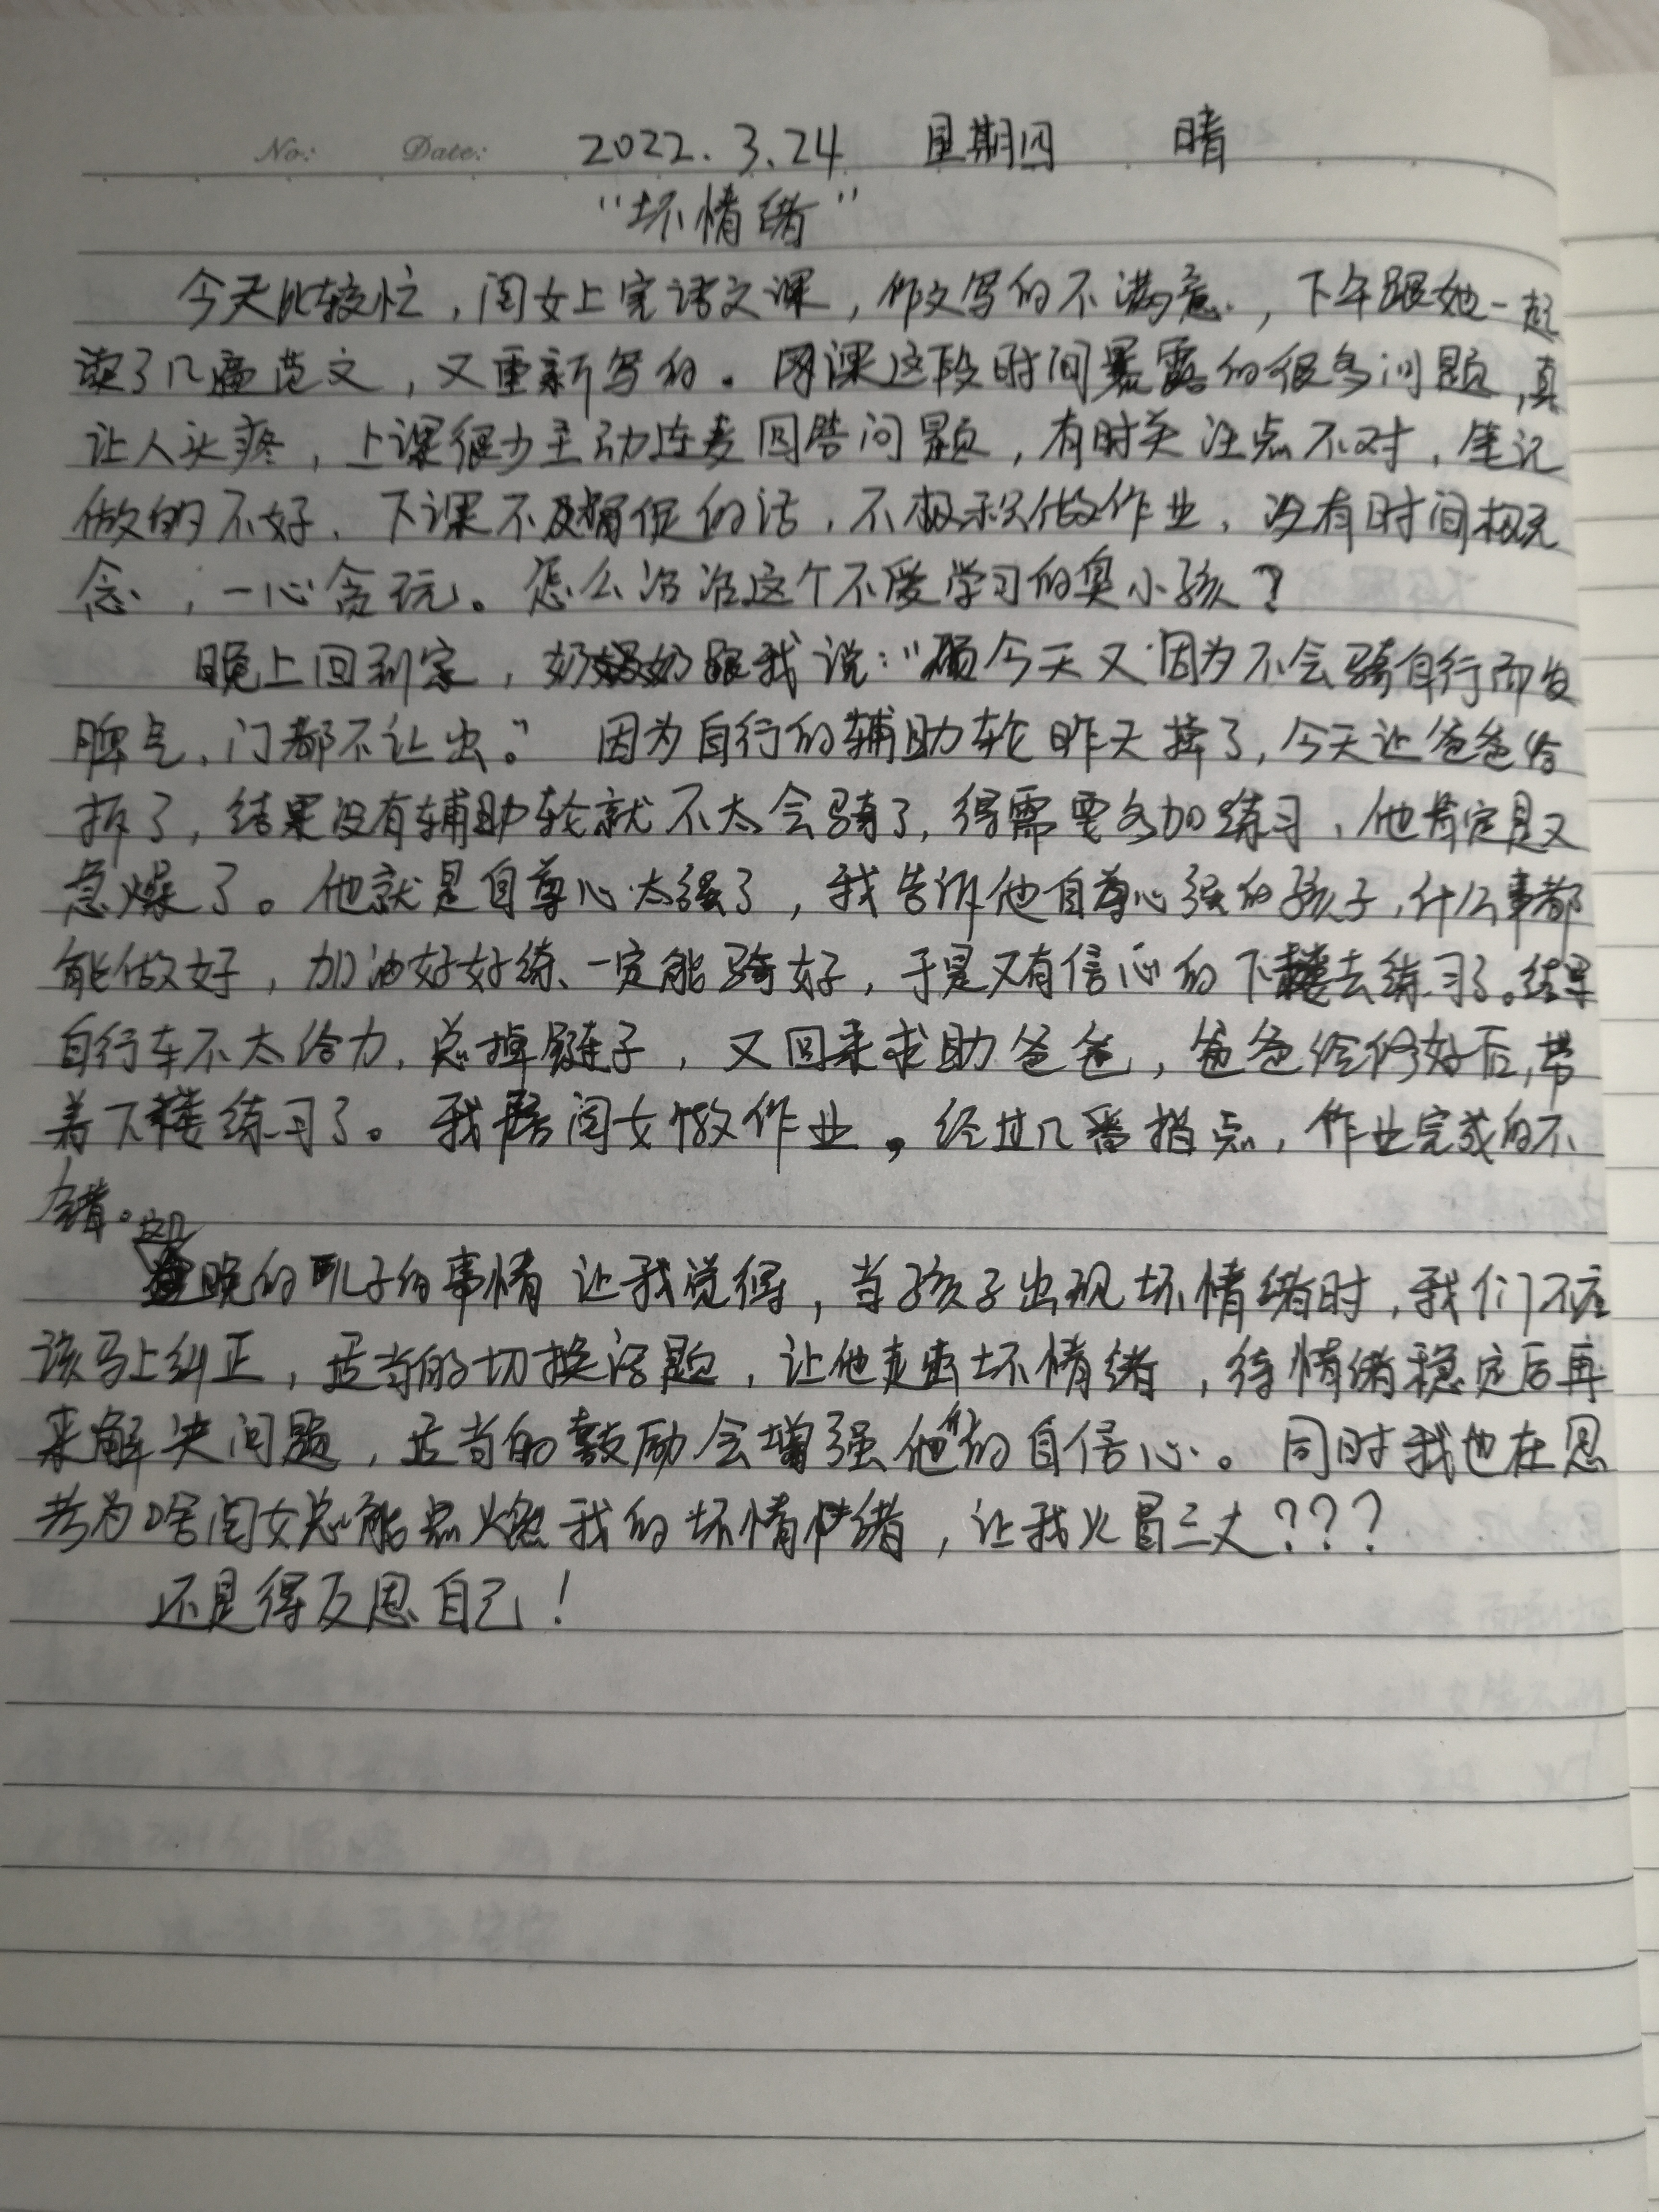 No: Date: 2022.3.24 星期四 晴
“坏情绪”
今天比较忙，闺女上完语文课，作文写的不满意，下午跟她一起
读了几篇范文，又重新写的。网课这段时间暴露的很多问题，真
让人头疼，上课很少主动连麦回答问题，有时关注点不对，笔记
做的不好，下课不及督促的话，不积极做作业，没有时间观
念，一心贪玩。怎么治治这个不爱学习的臭小孩？
晚上回到家，奶奶跟我说：“硕今天又因为不会骑自行而发
脾气，门都不让出。”因为自行的辅助轮昨天掉了，今天让爸爸给
拆了，结果没有辅助轮就不太会骑了，得需要多加练习，他肯定是又
急燥了。他就是自尊心太强了，我告诉他自尊心强的孩子，什么事都
能做好，加油好好练、一定能骑好，于是又有信心的下楼去练习了。结果
自行车不太给力，总掉链子，又回来求助爸爸，爸爸给修好后，带
着下楼练习了。我陪闺女做作业，经过几番指点，作业完成的不
错。
晚的儿子的事情让我觉得，当孩子出现坏情绪时，我们不应
该马上纠正，适当的切换话题，让他走出坏情绪，待情绪稳定后再
来解决问题，适当的鼓励会增强他们的自信心。同时我也在思
考为啥闺女总能点燃我的坏情绪，让我火冒三丈？？？
还是得反思自己！